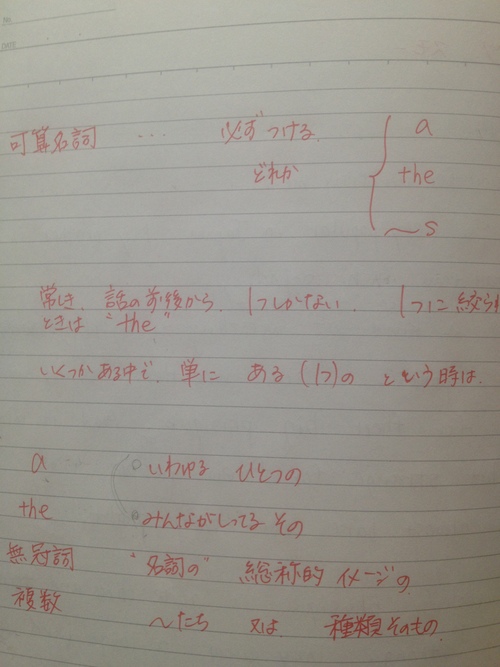 可算名詞 ... 必ずつける a
どれか the
〜s
常しき、話の前後から、1つしかない、1つに絞られ
ときは "the"
いくつかある中で、単に ある (1つ)の という時は、
a いわゆる ひとつの
the みんながしってる その
無冠詞 "名詞の" 総称的 イメージの
複数 〜たち 又は 種類そのもの